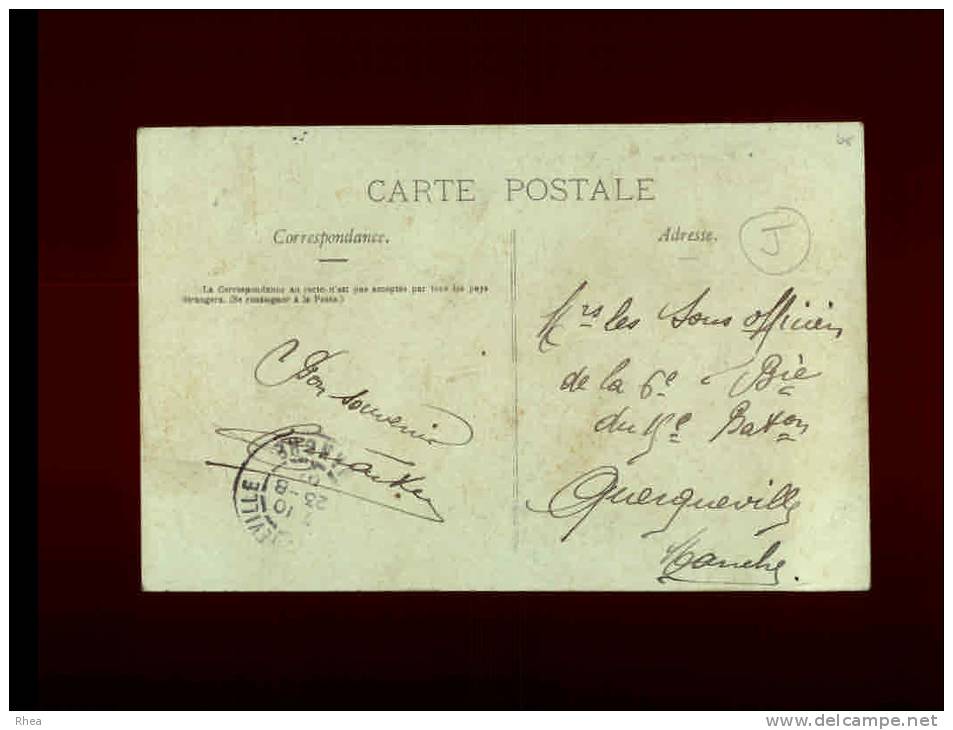 CARTE POSTALE
Correspondance.
La Correspondance au recto n'est pas acceptée par tous les pays
étrangers. (Se renseigner à la Poste.)
Bon souvenir
EVILLE
10
23 -8
Adresse.
J
Mrs les Sous officiers
de la 6e Bie
du 15e Baton
Querqueville
Manche.
Rhea
www.delcampe.net